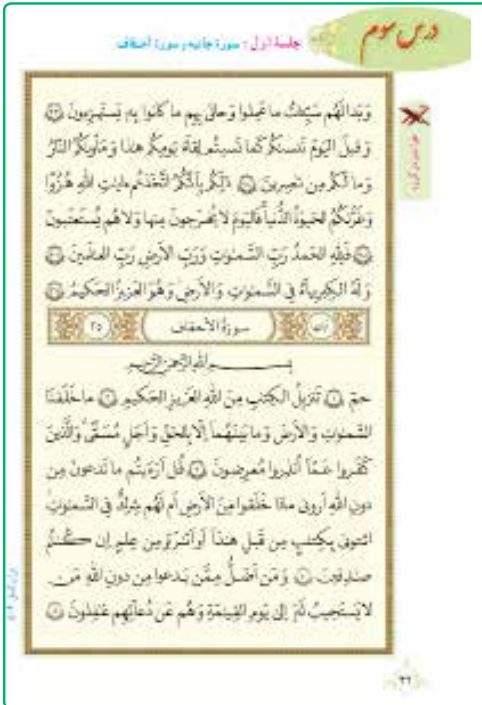 درس سوم
جلسهٔ اول : سورهٔ جاثیه و سورهٔ أحقاف
وَ بَدا لَهُم سَیِّئاتُ ما عَمِلوا وَ حاقَ بِهِم ما کانوا بِه یَستَهزِءونَ ۳۳
وَ قیلَ الیَومَ نَنسٰکُم کَما نَسیتُم لِقاءَ یَومِکُم هٰذا وَ مَأوٰکُمُ النّارُ
وَ ما لَکُم مِن ناصِرینَ ۳۴ ذٰلِکُم بِأَنَّکُمُ اتَّخَذتُم ءایٰتِ اللهِ هُزُوًا
وَ غَرَّتکُمُ الحَیوٰةُ الدُّنیا فَالیَومَ لا یُخرَجونَ مِنها وَ لا هُم یُستَعتَبونَ
۳۵ فَلِلّهِ الحَمدُ رَبِّ السَّمٰوٰتِ وَ رَبِّ الأَرضِ رَبِّ العالَمینَ ۳۶
وَ لَهُ الکِبرِیاءُ فِی السَّمٰوٰتِ وَ الأَرضِ وَ هُوَ العَزیزُ الحَکیمُ ۳۷
سورةُ الأحقاف ۳۵
بِسمِ اللهِ الرَّحمٰنِ الرَّحیمِ
حمٓ ۱ تَنزیلُ الکِتٰبِ مِنَ اللهِ العَزیزِ الحَکیمِ ۲ ما خَلَقنَا
السَّمٰوٰتِ وَ الأَرضَ وَ ما بَینَهُما إِلّا بِالحَقِّ وَ أَجَلٍ مُسَمًّی وَ الَّذینَ
کَفَروا عَمّا أُنذِروا مُعرِضونَ ۳ قُل أَرَءَیتُم ما تَدعونَ مِن
دونِ اللهِ أَرونی ماذا خَلَقوا مِنَ الأَرضِ أَم لَهُم شِرکٌ فِی السَّمٰوٰتِ
ائتونی بِکِتٰبٍ مِن قَبلِ هٰذا أَو أَثٰرَةٍ مِن عِلمٍ إِن کُنتُم
صٰدِقینَ ۴ وَ مَن أَضَلُّ مِمَّن یَدعوا مِن دونِ اللهِ مَن
لا یَستَجیبُ لَهُ إِلیٰ یَومِ القِیٰمَةِ وَ هُم عَن دُعائِهِم غٰفِلونَ ۵